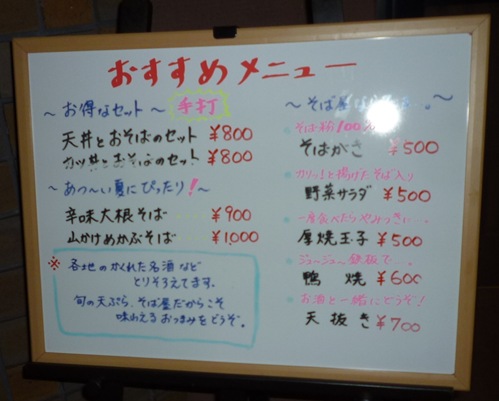 おすすめメニュー
～お得なセット～ 手打
天丼とおそばのセット ¥800
カツ丼とおそばのセット ¥800
～あつ～い夏にぴったり!～
辛味大根そば ¥900
山かけめかぶそば ¥1,000
※ 各地のかくれた名酒など
とりそろえてます。
旬の天ぷら、そば屋だからこそ
味わえるおつまみをどうぞ。
～そば屋
そば粉100%
そばがき ¥500
カリッと揚げたそば入り
野菜サラダ ¥500
一度食べたらやみつきぃ…。
厚焼玉子 ¥500
ジュージュー鉄板で…。
鴨 焼 ¥600
お酒と一緒にどうぞ!
天抜き ¥700